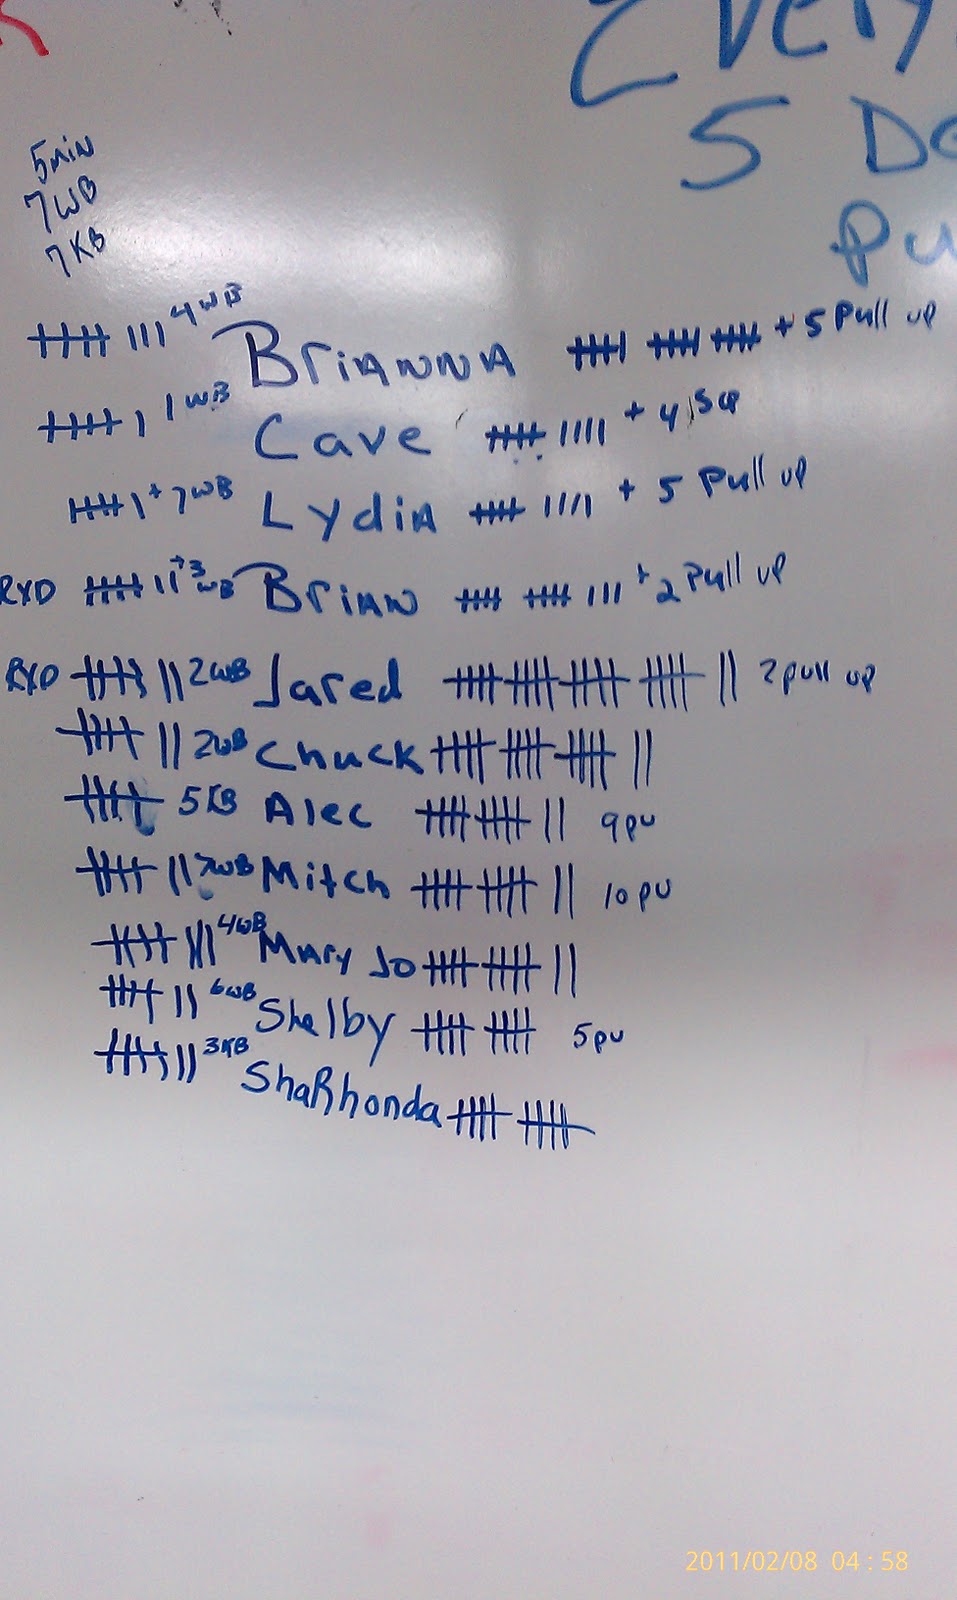 Every
5 De
Pu
5min
7WB
7KB
卌 ||| 4WB Brianna 卌 卌 卌 + 5 Pull up
卌 | 1WB Cave 卌 |||| + 4
卌 | + 7WB Lydia 卌 |||| + 5 Pull up
RXD 卌 || +3 WB Brian 卌 卌 ||| + 2 Pull up
RXD 卌 || 2WB Jared 卌 卌 卌 卌 || 2 pull up
卌 || 2WB Chuck 卌 卌 卌 ||
卌 5KB Alec 卌 卌 || 9pu
卌 || 7WB Mitch 卌 卌 || 10 pu
卌 ||| 4WB Mary Jo 卌 卌 ||
卌 || 6WB Shelby 卌 卌 5pu
卌 || 3KB ShaRhonda 卌 卌
2011/02/08 04:58